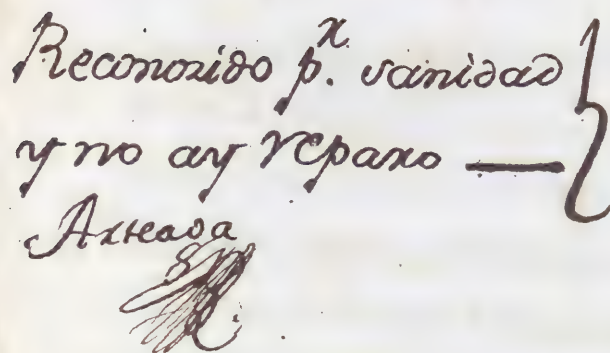 Reconozido p.r sanidad
y no ay reparo —
Arteaga